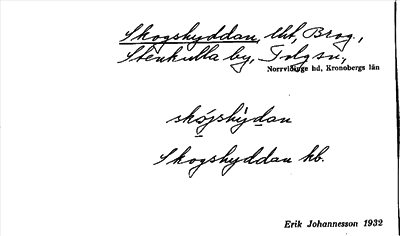 Skogshyddan, lht, Brog.,
Stenkulla by, Tolg sn,
Norrvidinge hd, Kronobergs län
skọ́jshỳdan
Skogshyddan kb.
Erik Johannesson 1932